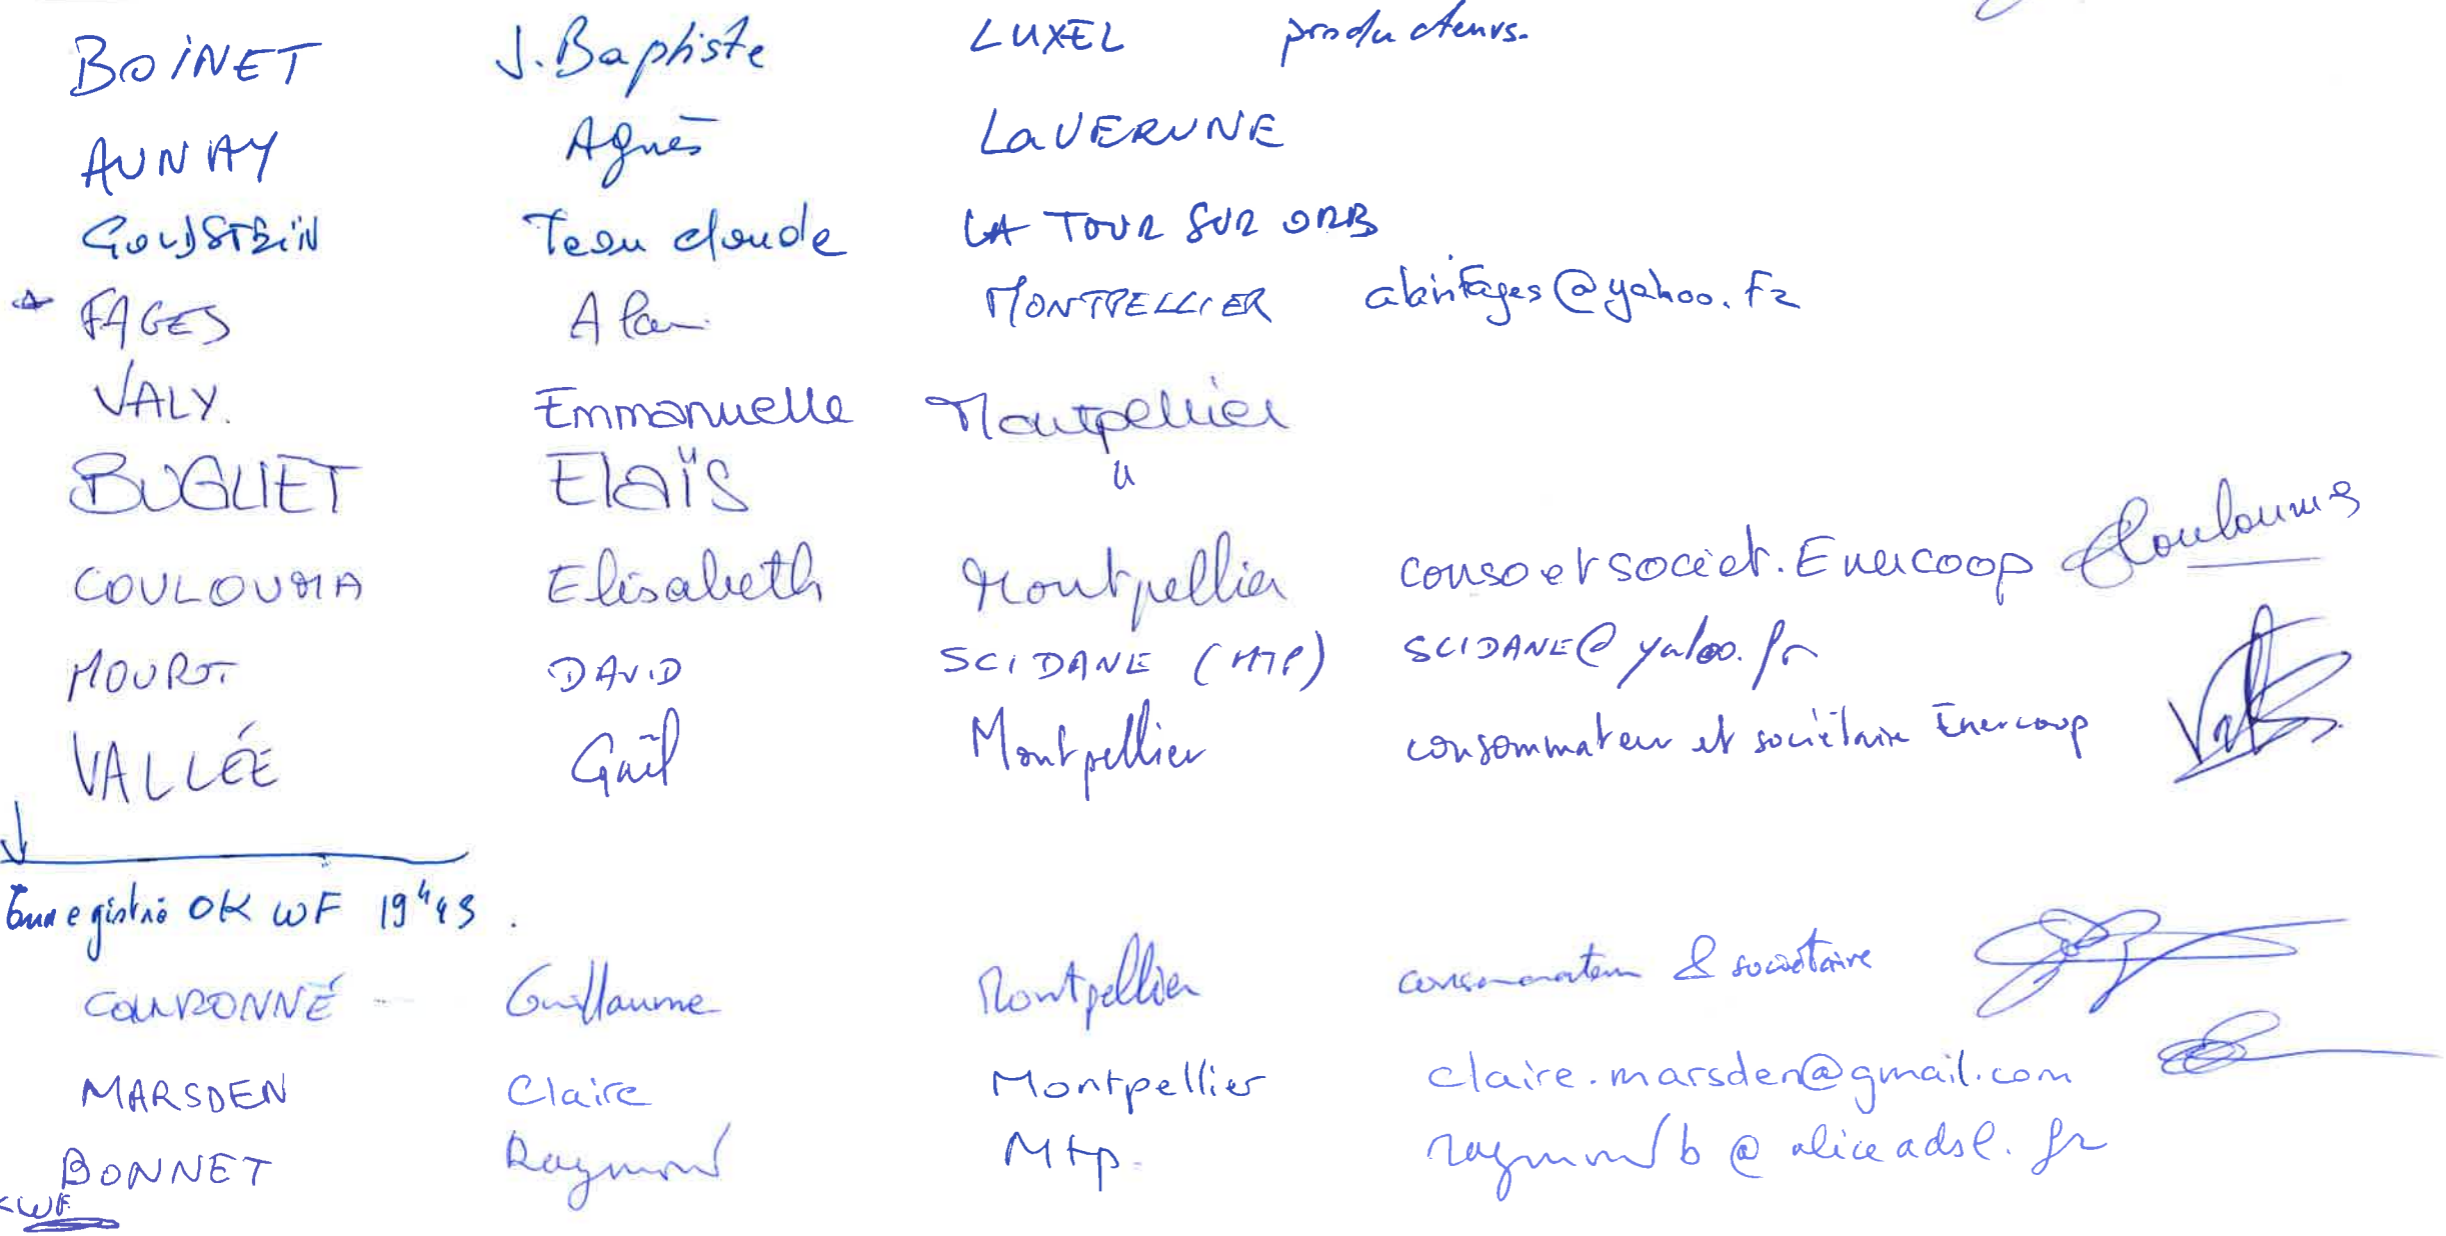 BOINET J. Baptiste LUXEL producteurs.
AUNAY Agnès LAVERUNE
GOLDSTEIN Jean claude LA TOUR SUR ORB
FAGES Alain MONTPELLIER alainfages@yahoo.fr
VALY. Emmanuelle Montpellier
BUGLIET Elaïs "
COULOUMA Elisabeth Montpellier conso et sociét. Enercoop Coulouma
MOUROT DAVID SCI DANE (MTP) SCIDANE@yahoo.fr
VALLÉE Gaël Montpellier consommateur et sociétaire Enercoop
Enregistré OK WF 19h43.
COURONNÉ Guillaume Montpellier consommateur & sociétaire
MARSDEN Claire Montpellier claire.marsden@gmail.com
BONNET Raymond Mtp. raymondb@aliceadsl.fr
WF